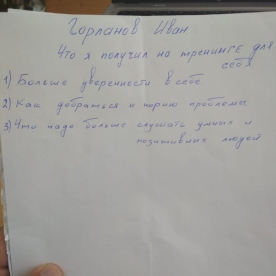 Горланов Иван
Что я получил на тренинге для
себя
1) Больше уверенности в себе
2) Как добраться к корню проблемы
3) Что надо больше слушать умных и
позитивных людей